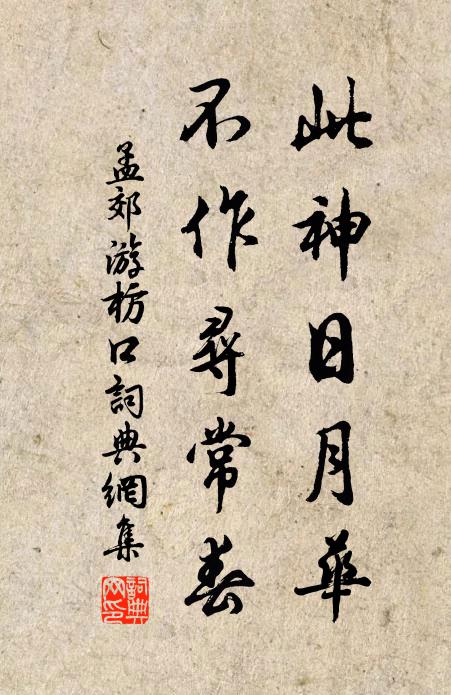 此神日月華
不作尋常春
孟郊游枋口詞典網集
詞典網印